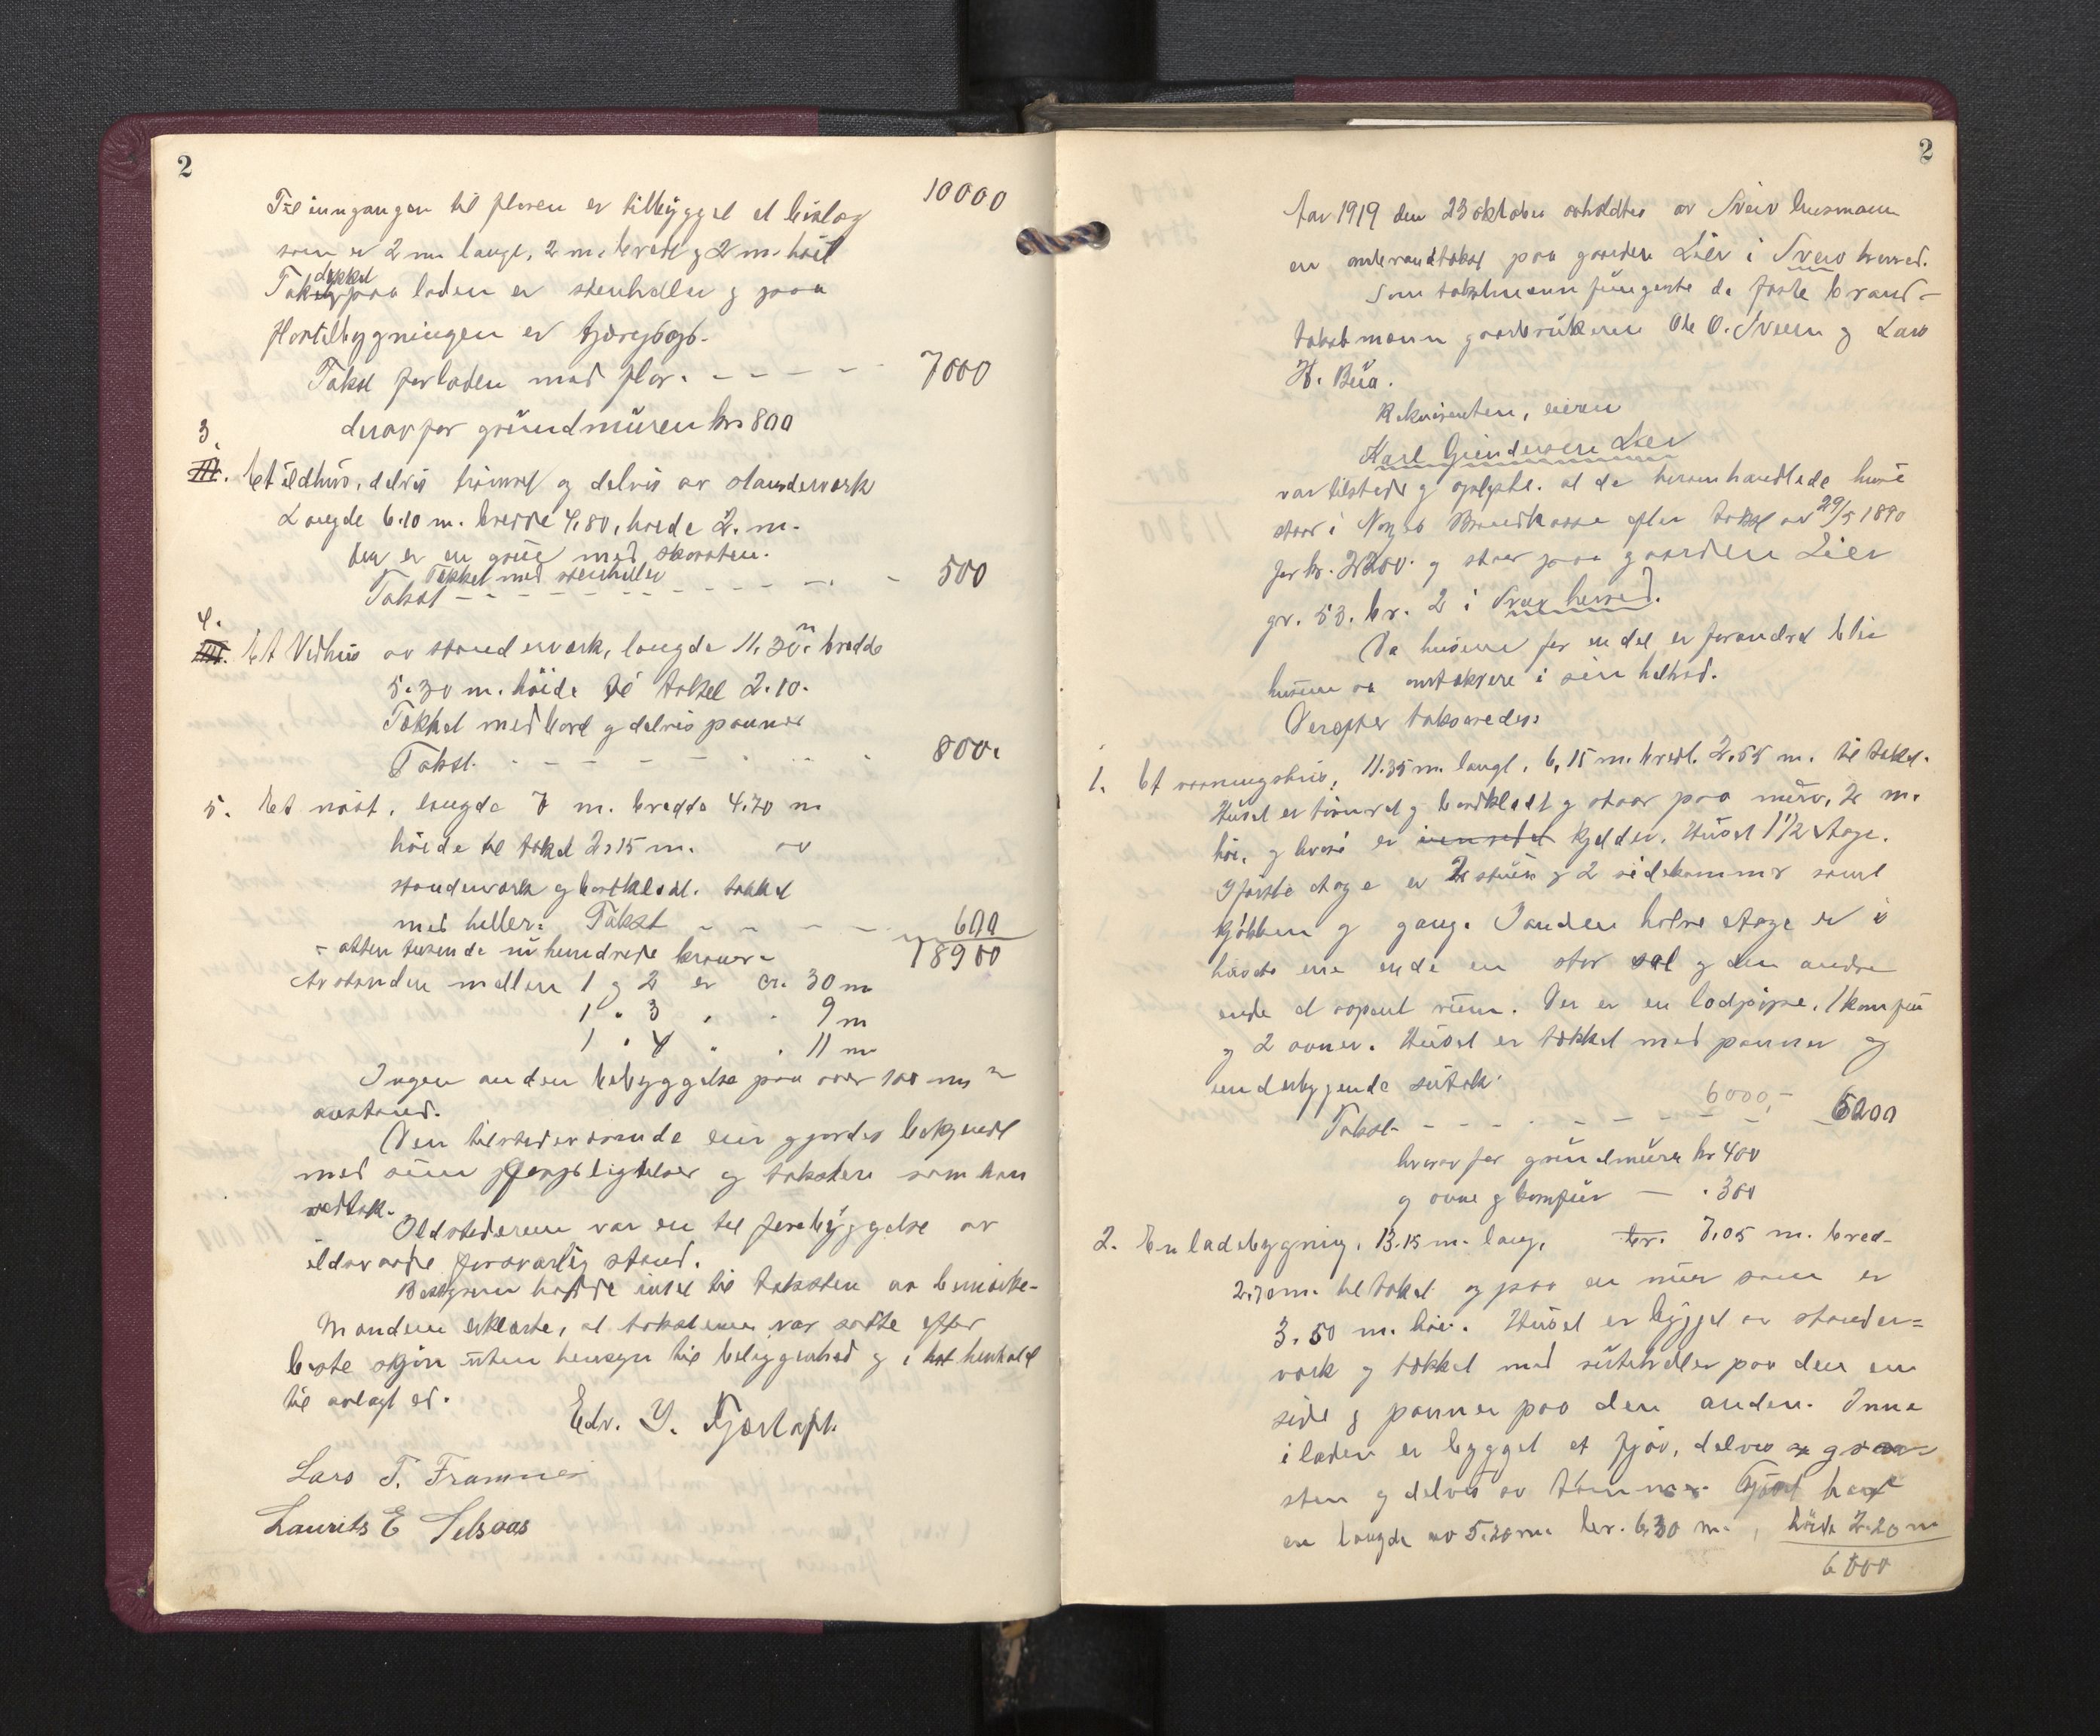 2
10000
Til inngangen til floren er tilbygget et bislag
som er 2 m. langt, 2 m. bredt og 2 m. höit
dekket
Tak paa laden er stenheller og paa
flortilbygningen er
Takst for laden med flor. - - - - - 7000
derav for grundmüren kr 800
3.
III. Et ildhus, delvis tömret og delvis av standerverk
Længde 6.10 m. bredde 4.80, høide 2. m.
Der er en grue med skorsten.
Tekket med stenheller
Takst - - - - - - - - 500
4.
IIII. Et Vedhus av standerverk, længde 11.30 m. bredde
5.30 m. höide til taket 2.10.
Tekket med bord og delvis panner
Takst. - - - - - 800.
5. Et nöst, længde 7 m. bredde 4.70 m
höide til taket 2,15 m. av
standerverk og bordklædt. tekket
med heller. Takst - - - - 600
- atten tusende nihundrede kroner - 18900
Avstanden mellem 1 og 2 er ca. 30 m
1 " 3 " " 9 m
1 " 4 " " 11 m
Ingen anden bebyggelse paa over 100 m
avstand.
Den tilstedeværende eier gjordes bekjendt
med sine forpligtelser og taksten som han
vedtok.
Ildstederne var en til forebyggelse av
ildsvaade forsvarlig stand.
Bestyreren hadde intet til taksten at bemærke.
Mændene erklærte, at takstene var satte efter
beste skjön uten hensyn til beliggenhed og i henhold
til avlagt ed.
Edv. Y.
Lars T. Framnes
Laurits E Selsaas
2
Aar 1919 den 23 oktober avholdtes av Sveio lensmann
en ombrandtakst paa gaarden Lier i Sveio herred.
Som takstmenn fungerte de faste brand-
takstmenn gaardbrukerne Ole O. Sveen og Lars
H. Bua.
Rekvirenten, eieren
Karl Gundersen Lier
var tilstede og oplyste. at de herom handlede huse
staar i Norges Brandkasse efter takst av 29/5 1890
for kr. 2200. og staar paa gaarden Lier
gr. 53. br. 2 i Sveio herred.
Da husene for en del er forandret blir
husene at omtaksere i sin helhed.
Derefter takseredes:
1. Et vaaningshus, 11.35 m. langt, 6,15 m. bredt. 2.55 m. til taket.
Huset er tömret og bordklædt og staar paa mur, 2 m.
höi, og hvori er kjelder. Huset 1 1/2 etage.
I förste etage er 2 stuer og 2 sidekammer samt
kjökken og gang. I anden halve etage er i
den ene ende en stor sal og den andre
ende et aapent rum. Der er en lodpipe, 1 komfur
og 2 ovner. Huset er tekket med panner og
underliggende sutak.
6000,-
Takst - - - - - - - - 5200
hvorav for grundmuren kr 400
og ovne og komfur — " 300
2. En ladebygning, 13.15 m. lang, br. 7,05 m. bred-
2.70 m. til taket og paa en mur som er
3.50 m. höi. Huset er bygget av stander=
verk og tekket med paa den ene
side og panner paa den anden. Inne
i laden er bygget et fjös, delvis av graa
sten og delvis av tömmer. Fjöset har
en længde av 5.20 m. br. 6.30 m., höide 2.20 m
6000